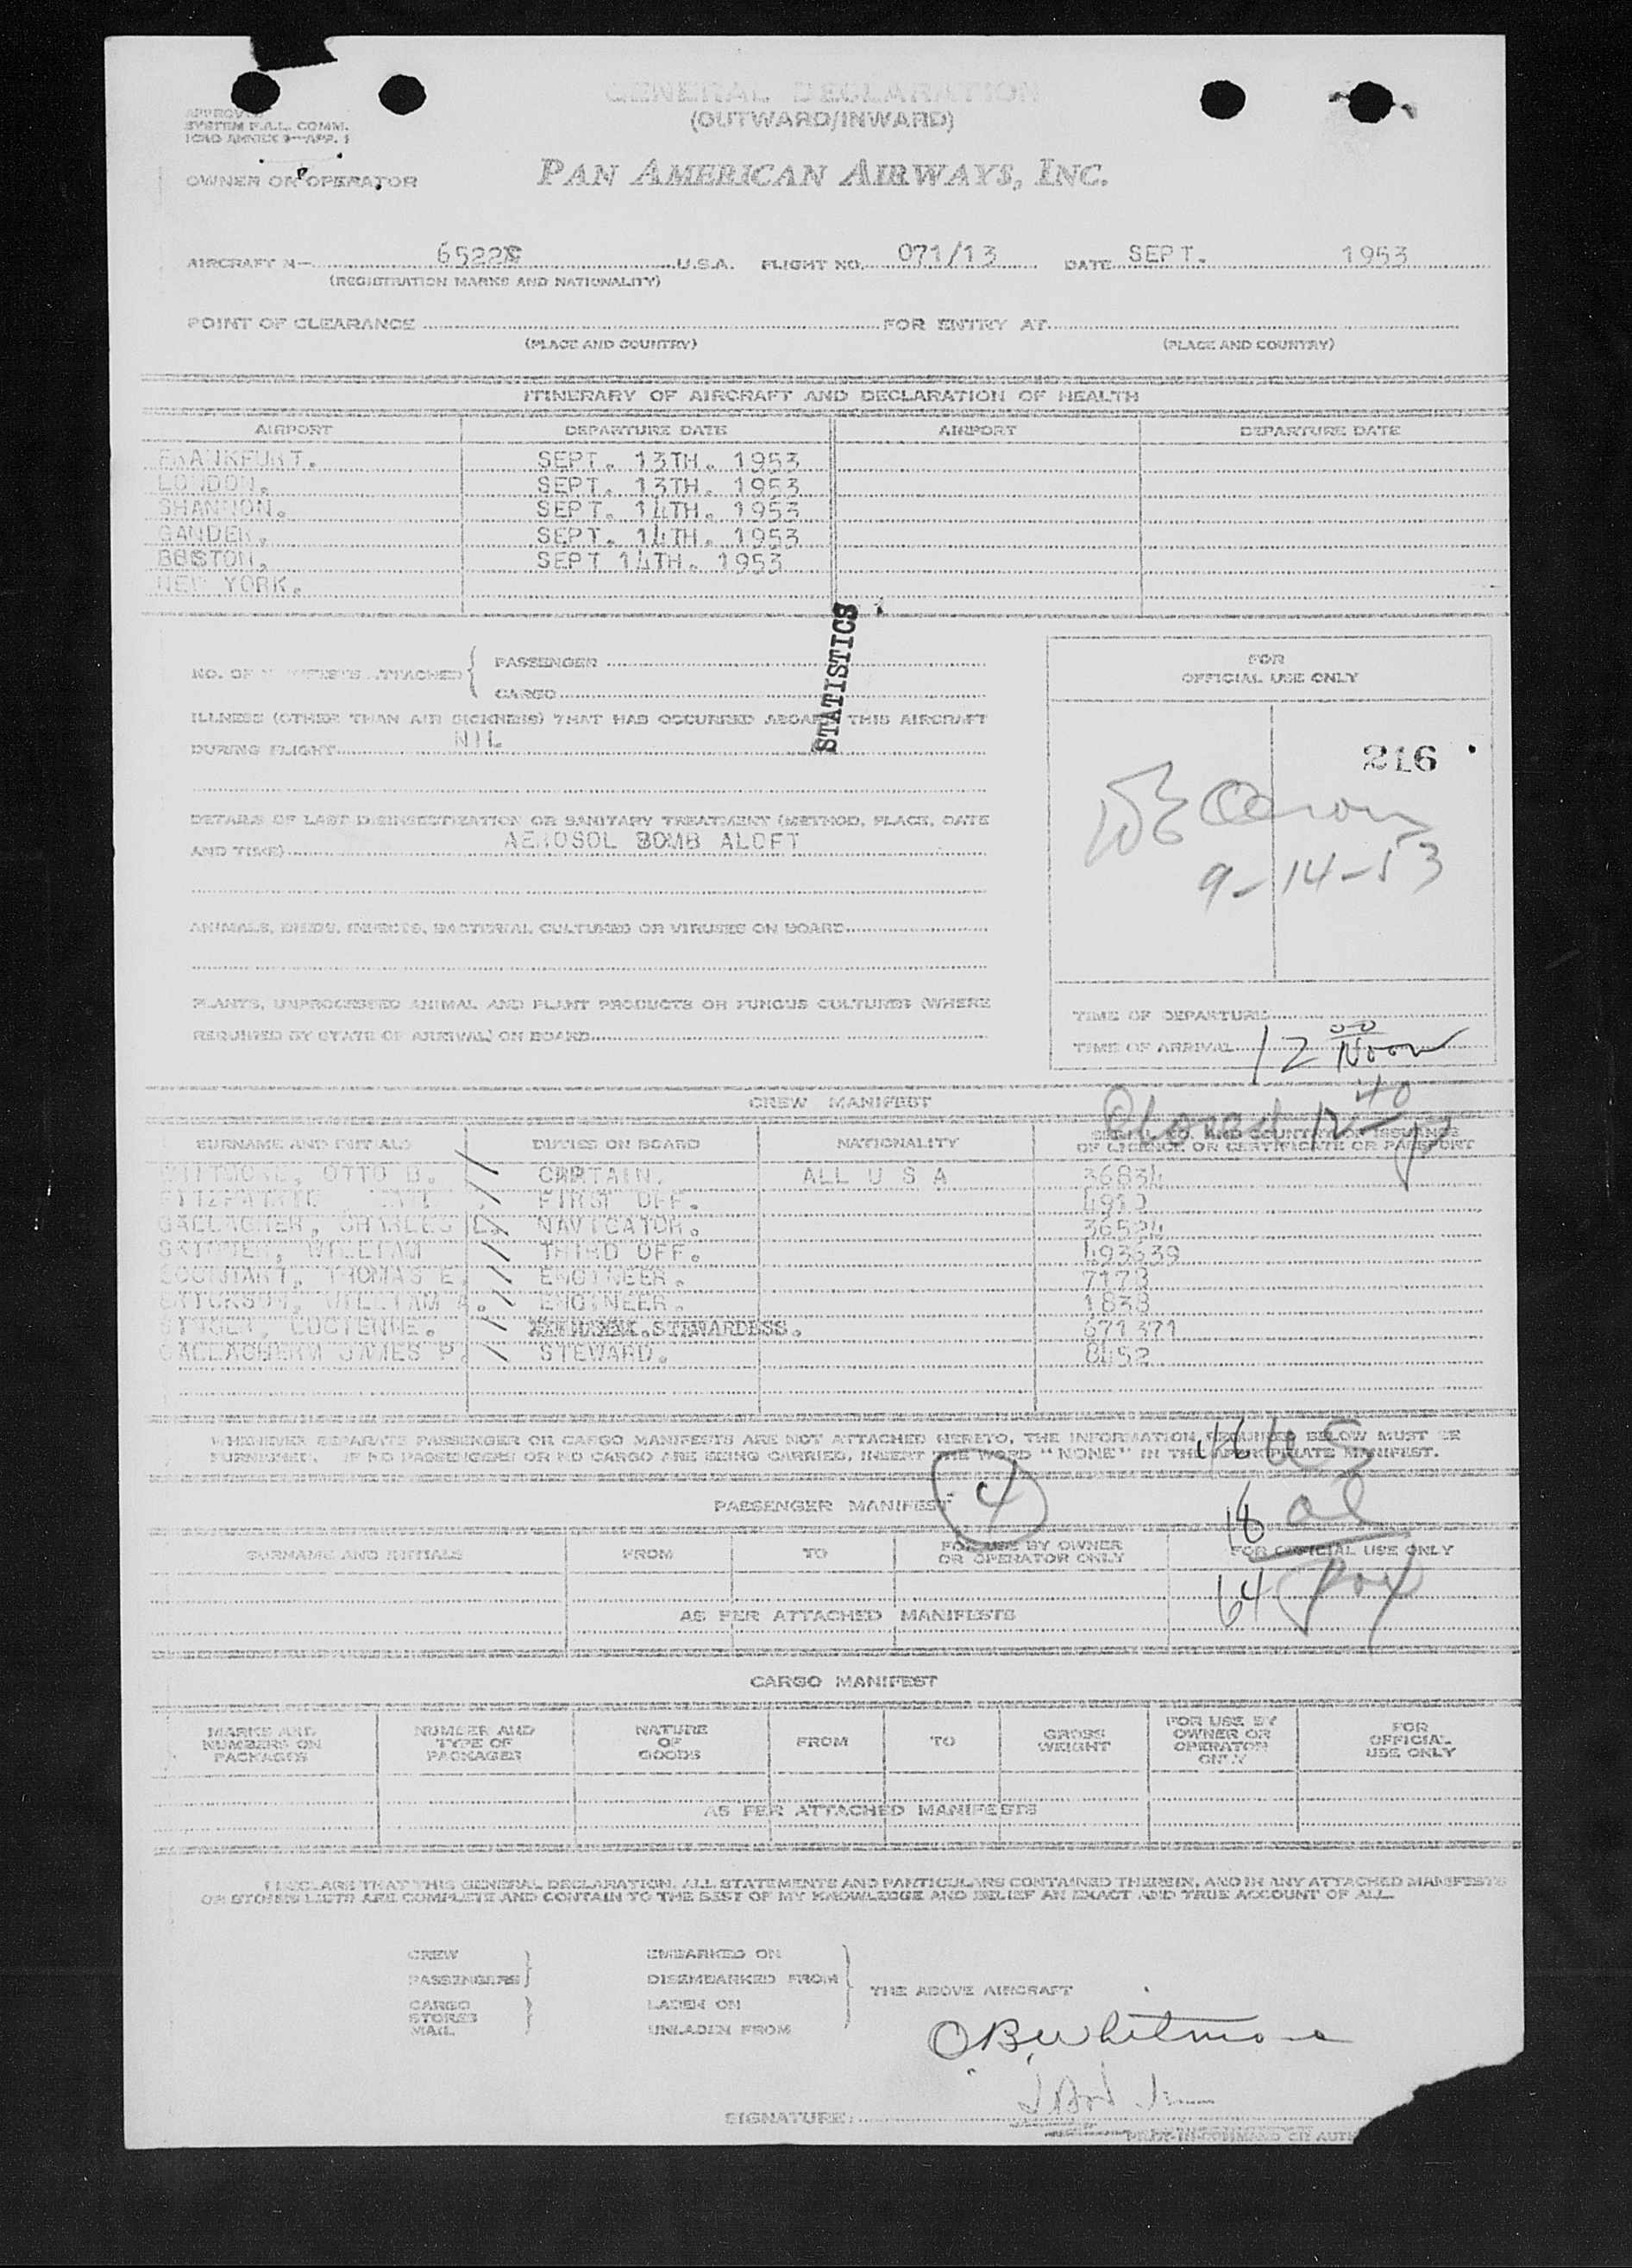 GENERAL DECLARATION
(OUTWARD/INWARD)
SYSTEM F.A.L. COMM.
ICAO ANNEX 9—APP. 1
OWNER OR OPERATOR
PAN AMERICAN AIRWAYS, INC.
AIRCRAFT N— 6522 U.S.A. FLIGHT NO. 071/13 DATE SEPT. 1953
(REGISTRATION MARKS AND NATIONALITY)
POINT OF CLEARANCE FOR ENTRY AT
(PLACE AND COUNTRY) (PLACE AND COUNTRY)
ITINERARY OF AIRCRAFT AND DECLARATION OF HEALTH
AIRPORT DEPARTURE DATE AIRPORT DEPARTURE DATE
FRANKFURT. SEPT. 13TH. 1953
LONDON. SEPT. 13TH. 1953
SHANNON. SEPT. 14TH. 1953
GANDER. SEPT. 14TH. 1953
BOSTON. SEPT 14TH. 1953
NEW YORK.
STATISTICS
NO. OF MANIFESTS ATTACHED { PASSENGER
CARGO
FOR
OFFICIAL USE ONLY
ILLNESS (OTHER THAN AIR SICKNESS) THAT HAS OCCURRED ABOARD THIS AIRCRAFT
DURING FLIGHT NIL
216
DETAILS OF LAST DISINSECTIZATION OR SANITARY TREATMENT (METHOD, PLACE, DATE
AND TIME) AEROSOL BOMB ALOFT
9-14-53
ANIMALS, BIRDS, INSECTS, BACTERIAL CULTURES OR VIRUSES ON BOARD
PLANTS, UNPROCESSED ANIMAL AND PLANT PRODUCTS OR FUNGUS CULTURES (WHERE
REQUIRED BY STATE OF ARRIVAL) ON BOARD
TIME OF DEPARTURE
TIME OF ARRIVAL 12 00 Noon
CREW MANIFEST
Closed 12 40 p
SURNAME AND INITIALS DUTIES ON BOARD NATIONALITY SERIAL NO. AND COUNTRY OF ISSUANCE
OF LICENCE OR CERTIFICATE OR PASSPORT
WHITMORE, OTTO B. // CAPTAIN. ALL U S A 36834
FITZPATRICK // FIRST OFF.
GALLAGHER, CHARLES // NAVIGATOR. 36524
WILLIAM // THIRD OFF. 493539
THOMAS E. // ENGINEER. 7178
ERICKSON, WILLIAM A. // ENGINEER. 1838
SINGER, LUCIENNE. / STEWARDESS. 671371
GALLAGHERM JAMES P. / STEWARD. 8452
WHENEVER SEPARATE PASSENGER OR CARGO MANIFESTS ARE NOT ATTACHED HERETO, THE INFORMATION REQUIRED BELOW MUST BE
FURNISHED. IF NO PASSENGERS OR NO CARGO ARE BEING CARRIED, INSERT THE WORD "NONE" IN THE APPROPRIATE MANIFEST.
PASSENGER MANIFEST
4
46 US
18 al
64 pax
SURNAME AND INITIALS FROM TO FOR USE BY OWNER
OR OPERATOR ONLY FOR OFFICIAL USE ONLY
AS PER ATTACHED MANIFESTS
CARGO MANIFEST
MARKS AND
NUMBERS ON
PACKAGES
NUMBER AND
TYPE OF
PACKAGES
NATURE
OF
GOODS
FROM
TO
GROSS
WEIGHT
FOR USE BY
OWNER OR
OPERATOR
ONLY
FOR
OFFICIAL
USE ONLY
AS PER ATTACHED MANIFESTS
I DECLARE THAT THIS GENERAL DECLARATION, ALL STATEMENTS AND PARTICULARS CONTAINED THEREIN, AND IN ANY ATTACHED MANIFESTS
OR STORES LISTS ARE COMPLETE AND CONTAIN TO THE BEST OF MY KNOWLEDGE AND BELIEF AN EXACT AND TRUE ACCOUNT OF ALL.
CREW
PASSENGERS
CARGO
STORES
MAIL
EMBARKED ON
DISEMBARKED FROM
LADEN ON
UNLADEN FROM
THE ABOVE AIRCRAFT
O.B. Whitmore
SIGNATURE:
PILOT-IN-COMMAND OR AUTH